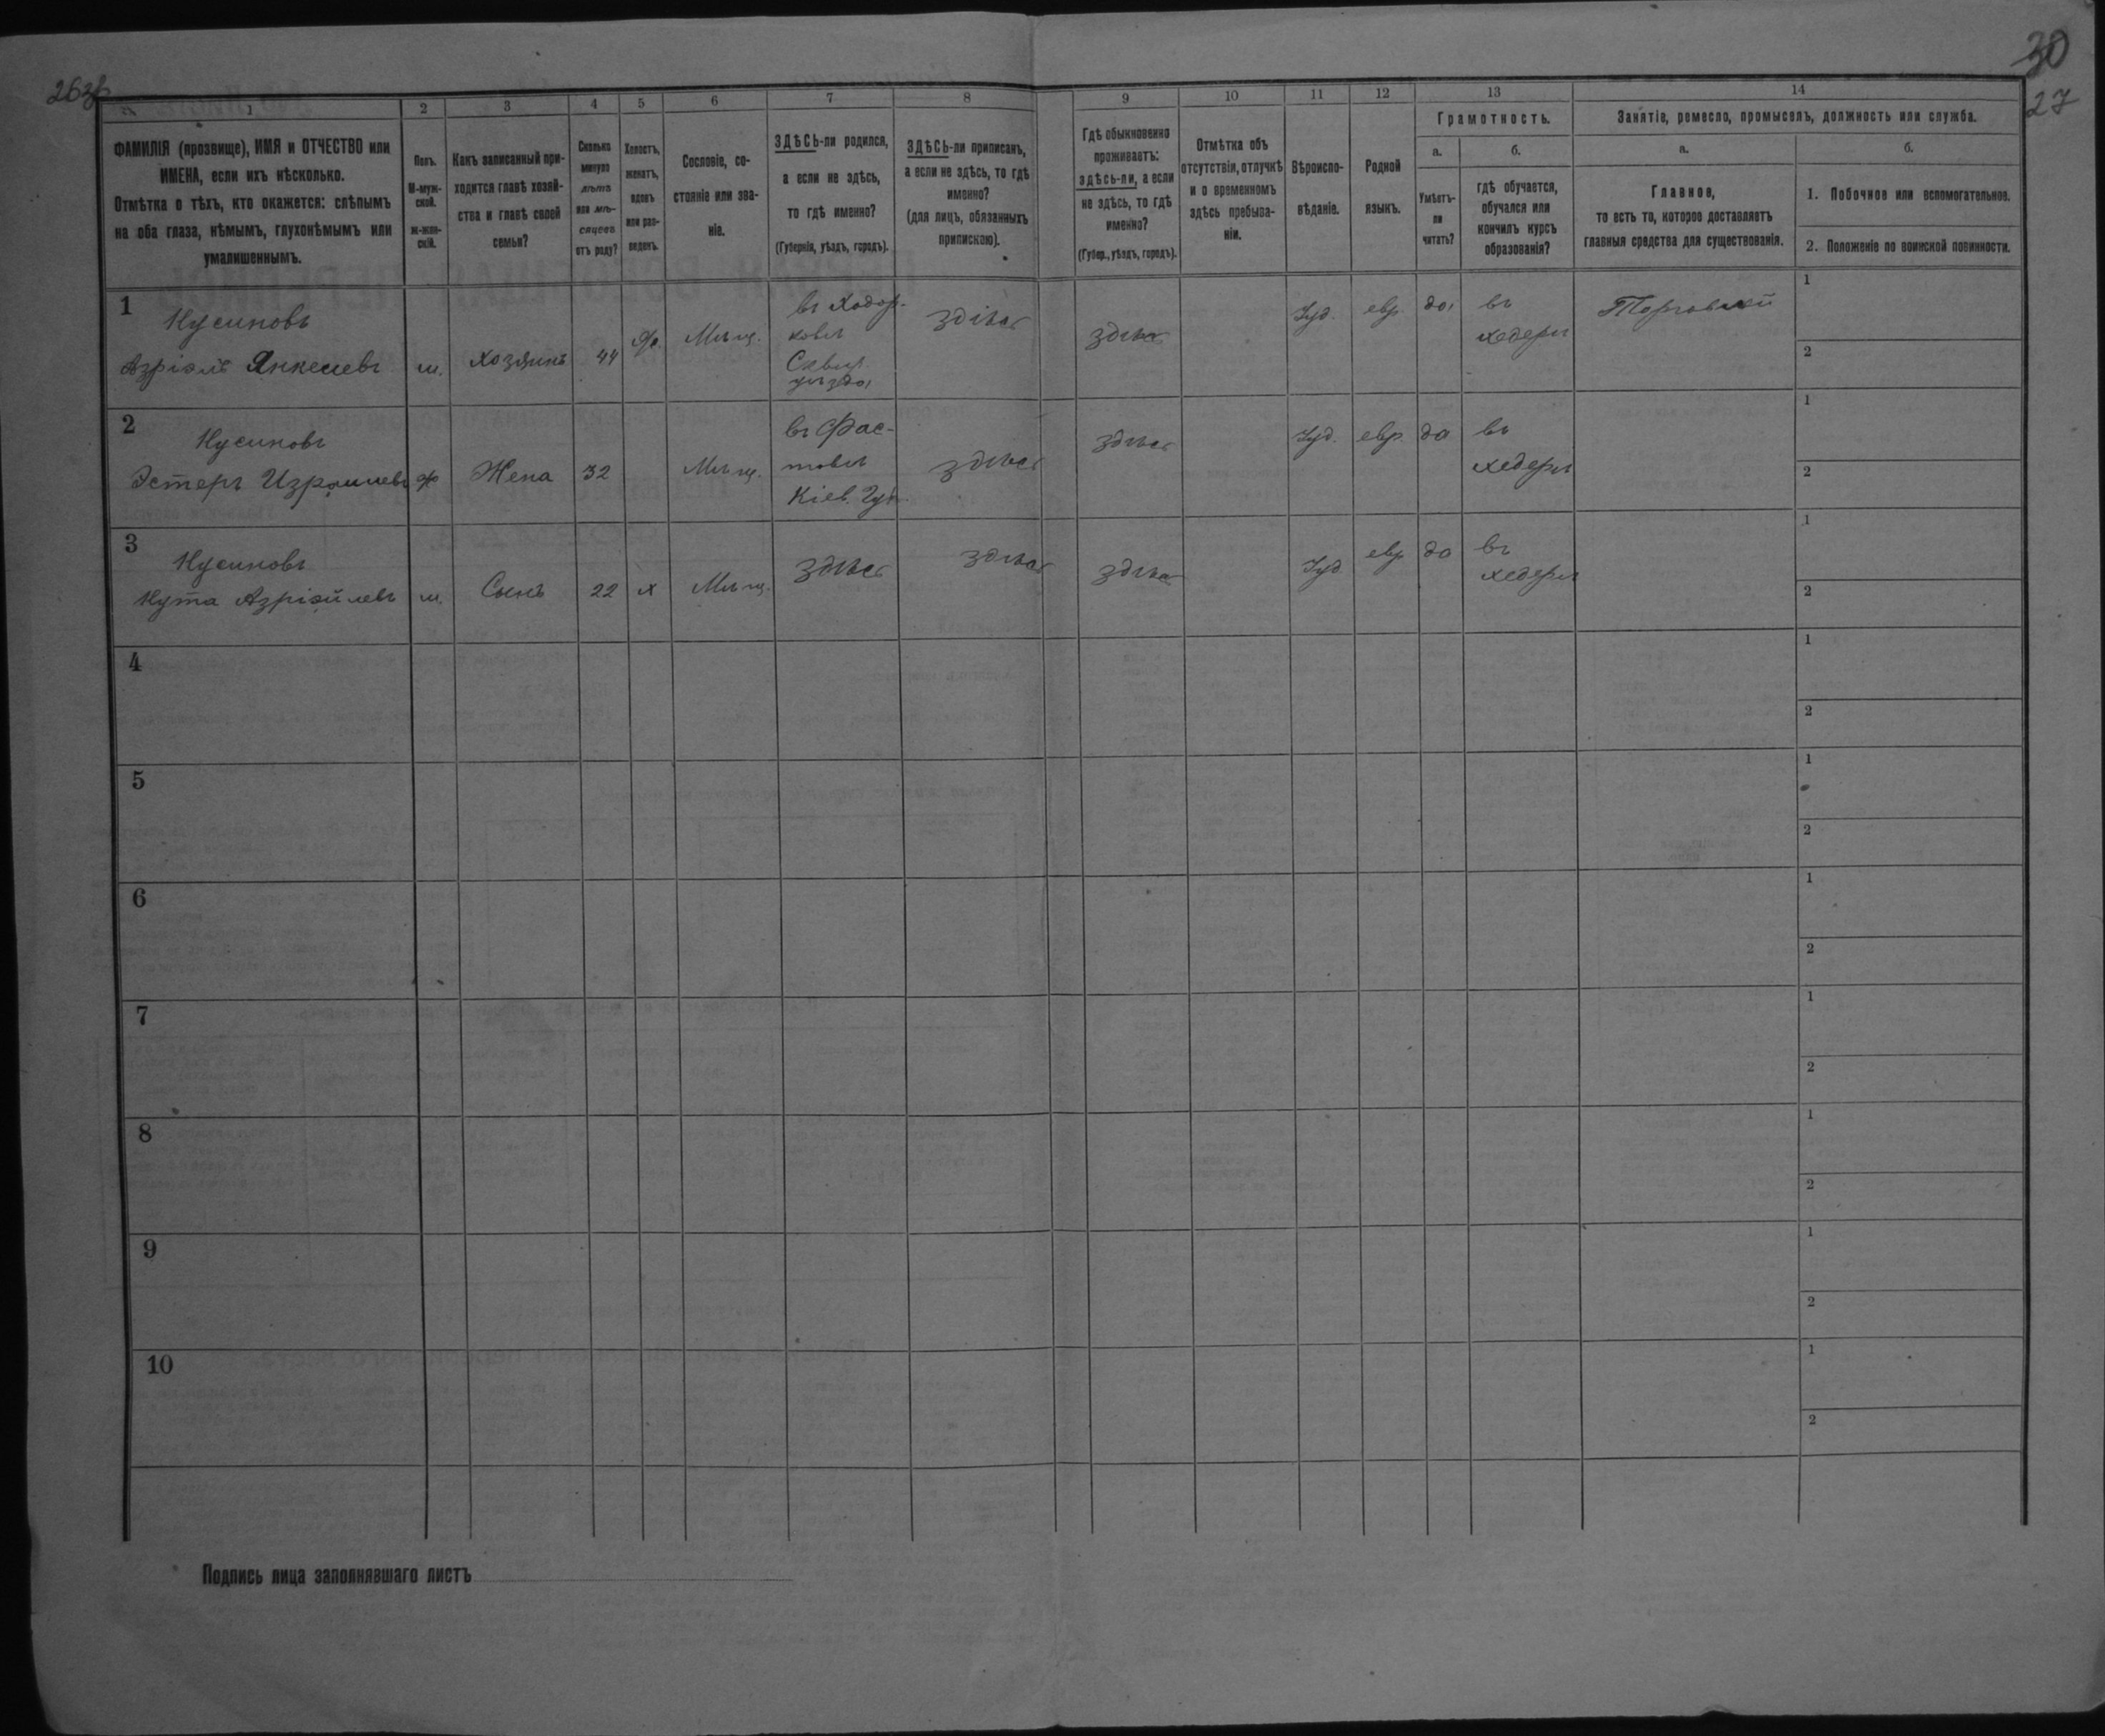 263б
30
27
1
2
3
4
5
6
7
8
9
10
11
12
13
14
ФАМИЛІЯ (прозвище), ИМЯ и ОТЧЕСТВО или
ИМЕНА, если ихъ нѣсколько.
Отмѣтка о тѣхъ, кто окажется: слѣпымъ
на оба глаза, нѣмымъ, глухонѣмымъ или
умалишеннымъ.
Полъ.
М-муж-
ской.
ж-жен-
скій.
Какъ записанный при-
ходится главѣ хозяй-
ства и главѣ своей
семьи?
Сколько
минуло
лѣтъ
или мѣ-
сяцевъ
отъ роду?
Холостъ,
женатъ,
вдовъ
или раз-
веденъ.
Сословіе, со-
стояніе или зва-
ніе.
ЗДѢСЬ-ли родился,
а если не здѣсь,
то гдѣ именно?
(Губернія, уѣздъ, городъ).
ЗДѢСЬ-ли приписанъ,
а если не здѣсь, то гдѣ
именно?
(для лицъ, обязанныхъ
припискою).
Гдѣ обыкновенно
проживаетъ:
здѣсь-ли, а если
не здѣсь, то гдѣ
именно?
(Губер., уѣздъ, городъ).
Отмѣтка объ
отсутствіи, отлучкѣ
и о временномъ
здѣсь пребыва-
ніи.
Вѣроиспо-
вѣданіе.
Родной
языкъ.
Грамотность.
а.
Умѣетъ-
ли
читать?
б.
гдѣ обучается,
обучался или
кончилъ курсъ
образованія?
Занятіе, ремесло, промыселъ, должность или служба.
а.
Главное,
то есть то, которое доставляетъ
главныя средства для существованія.
б.
1. Побочное или вспомогательное.
2. Положеніе по воинской повинности.
1
Кусиковъ
Азріэль Янкелевъ
м.
Хозяинъ
44
Мѣщ.
въ Ходор-
ковѣ
Сквир.
уѣзда
здѣсь
здѣсь
Іуд.
евр
да
въ
хедерѣ
1
2
2
Кусиковъ
Эстеръ Израилевъ
ж
Жена
32
Мѣщ.
въ Фас-
товѣ
Кіев. Губ.
здѣсь
здѣсь
Іуд.
евр.
да
въ
хедерѣ
1
2
3
Кусиковъ
Азріэйлевъ
м.
Сынъ
22
х
Мѣщ.
здѣсь
здѣсь
здѣсь
Іуд.
евр
да
въ
хедерѣ
1
2
4
1
2
5
1
2
6
1
2
7
1
2
8
1
2
9
1
2
10
1
2
Подпись лица заполнявшаго листъ